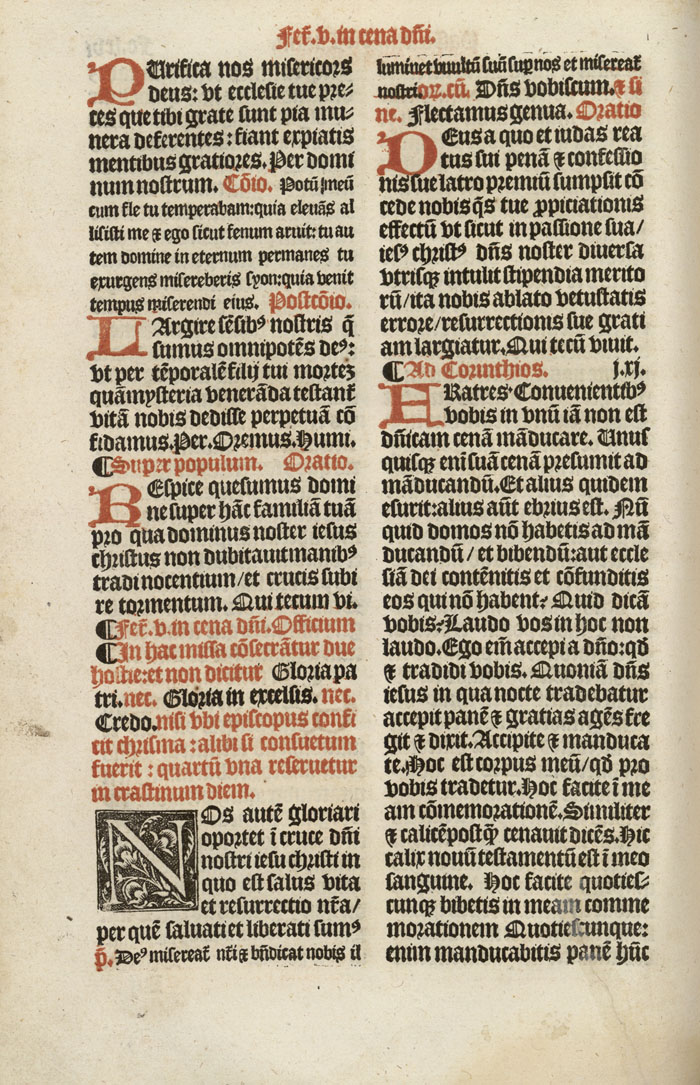 Fer̃. v. in cena dñi.
PUrifica nos misericors
deus: vt ecclesie tue pre-
ces que tibi grate sunt pia mu-
nera deferentes: fiant expiatis
mentibus gratiores. Per domi
num nostrum. Cõio. Potũ meũ
cum fle tu temperabam: quia eleuãs al
lisisti me ⁊ ego sicut fenum arui: tu au
tem domine in eternum permanes tu
exurgens misereberis syon: quia venit
tempus miserendi eius. Postcõio.
LArgire sẽsibꝰ nostris q̃
sumus omnipotẽs deꝰ:
vt per tẽporalẽ filij tui mortez
quã mysteria venerãda testant̃
vitã nobis dedisse perpetuã cõ
fidamus. Per. Oremus. Humi.
¶ Supra populum. Oratio.
REspice quesumus domi
ne super hãc familiã tuã
pro qua dominus noster iesus
christus non dubitauit manibꝰ
tradi nocentium/et crucis subi
re tormentum. Qui tecum vi.
¶ Fer̃. v. in cena dñi. Officium
¶ In hac missa cõsecrãtur due
hostie: et non dicitur Gloria pa
tri. nec. Gloria in excelsis. nec.
Credo. nisi vbi episcopus confi
cit chrisma: alibi si consuetum
fuerit: quartũ vna reseruetur
in crastinum diem.
NOs autẽ gloriari
oportet ĩ cruce dñi
nostri iesu christi in
quo est salus vita
et resurrectio nr̃a/
per quẽ saluati et liberati sumꝰ
p̃. Deꝰ misereat̃ nr̃i ⁊ bñdicat nobis il
luminet vultũ suũ sup nos et misereat̃
nostri. Or̃. cũ. Dñs vobiscum. ⁊ si
ne. Flectamus genua. Oratio
DEus a quo et iudas rea
tus sui penã ⁊ confessio
nis sue latro premiũ sumpsit cõ
cede nobis q̃s tue ꝓpiciationis
effectũ vt sicut in passione sua/
iesꝰ christꝰ dñs noster diuersa
vtrisqꝫ intulit stipendia merito
rũ/ita nobis ablato vetustatis
errore/resurrectionis sue grati
am largiatur. Qui tecũ viuit.
¶ Ad Corinthios. j. xj.
FRatres. Conuenientibꝰ
vobis in vnũ iã non est
dñicam cenã mãducare. Unus
quisqꝫ enĩ suã cenã presumit ad
mãducandũ. Et alius quidem
esurit: alius aũt ebrius est. Nũ
quid domos nõ habetis ad mã
ducandũ/et bibendũ: aut eccle
siã dei contẽnitis et cõfunditis
eos qui nõ habent? Quid dicã
vobis? Laudo vos in hoc non
laudo. Ego em̃ accepi a dño: qđ
⁊ tradidi vobis. Quoniã dñs
iesus in qua nocte tradebatur
accepit panẽ ⁊ gratias agẽs fre
git ⁊ dixit. Accipite ⁊ manduca
te. Hoc est corpus meũ/qđ pro
vobis tradetur. Hoc facite ĩ me
am cõmemorationẽ. Similiter
⁊ calicẽ postq̃ cenauit dicẽs. Hic
calix nouũ testamentũ est ĩ meo
sanguine. Hoc facite quoties-
cunqꝫ bibetis in meam comme
morationem Quotiescunque:
enim manducabitis panẽ hũc